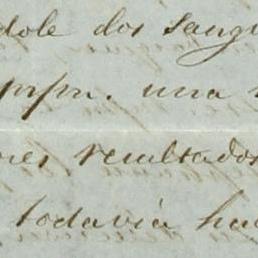 dole dos sangu
una
res resultados
todavia ha